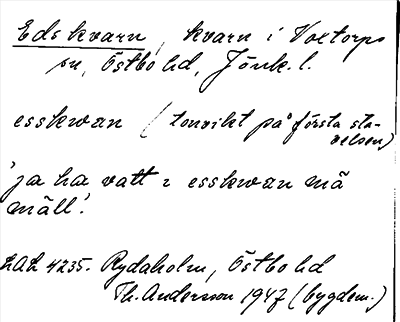 Edskvarn, kvarn i Voxtorps
sn, Östbo hd, Jönk. l.
esskwan (tonvikt på första sta-
velsen)
'ja ha vatt i esskwan mä
mäll'.
LAL 4235. Rydaholm, Östbo hd
Th. Andersson 1947 (bygdem.)